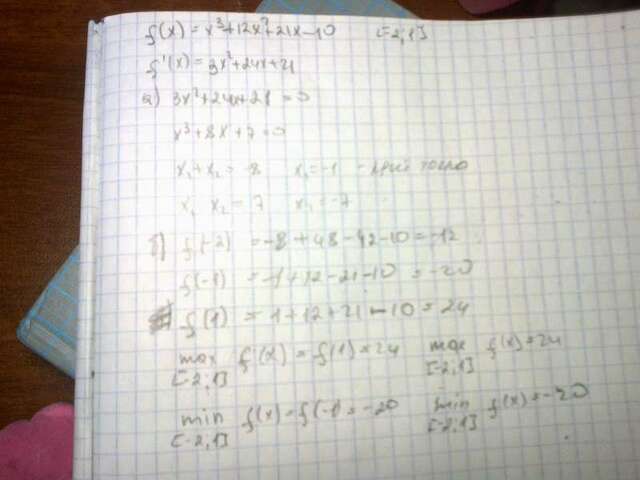 f(x) = x³+12x²+21x-10 [-2;1]
f'(x) = 3x²+24x+21
а) 3x²+24x+21 = 0
x²+8x+7=0
x₁+x₂ = -8 x₁=-1 - крит точка
x₁ x₂ = 7 x₂=-7
б) f(-2) = -8+48-42-10=-12
f(-1) = -1+12-21-10 = -20
f(1) = 1+12+21-10=24
max f(x) = f(1)=24 max f(x)=24
[-2;1] [-2;1]
min f(x)=f(-1)=-20 min f(x)=-20
[-2;1] [-2;1]